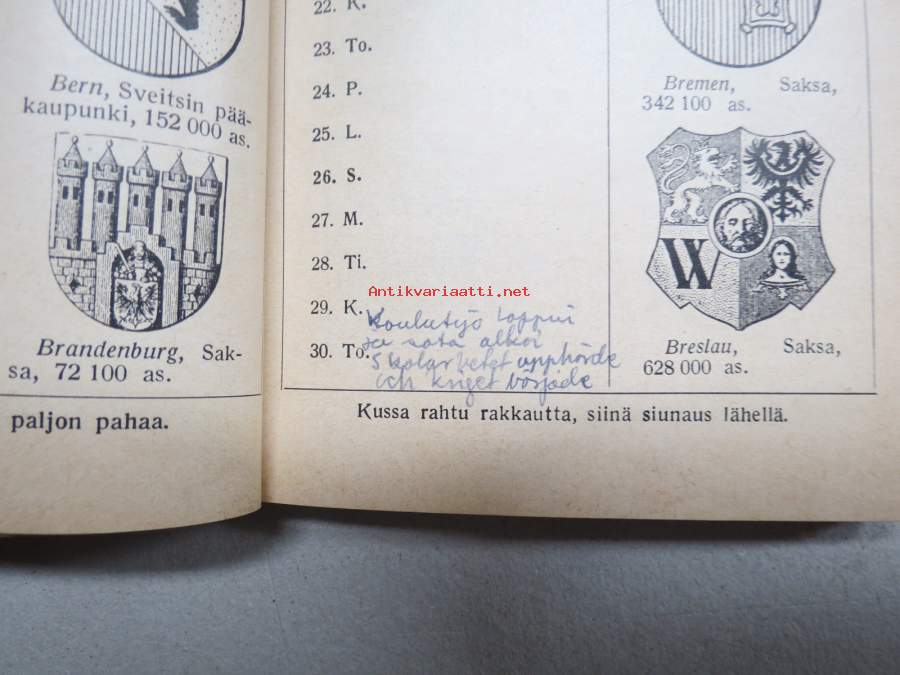 Bern, Sveitsin pää-
kaupunki, 152 000 as.
Brandenburg, Sak-
sa, 72 100 as.
paljon pahaa.
22. K.
23. To.
24. P.
25. L.
26. S.
27. M.
28. Ti.
29. K.
30. To.
Koulutyö loppui
ja sota alkoi
Skolarbetet upphörde
och kriget började
Bremen, Saksa,
342 100 as.
W
Breslau, Saksa,
628 000 as.
Kussa rahtu rakkautta, siinä siunaus lähellä.
Antikvariaatti.net